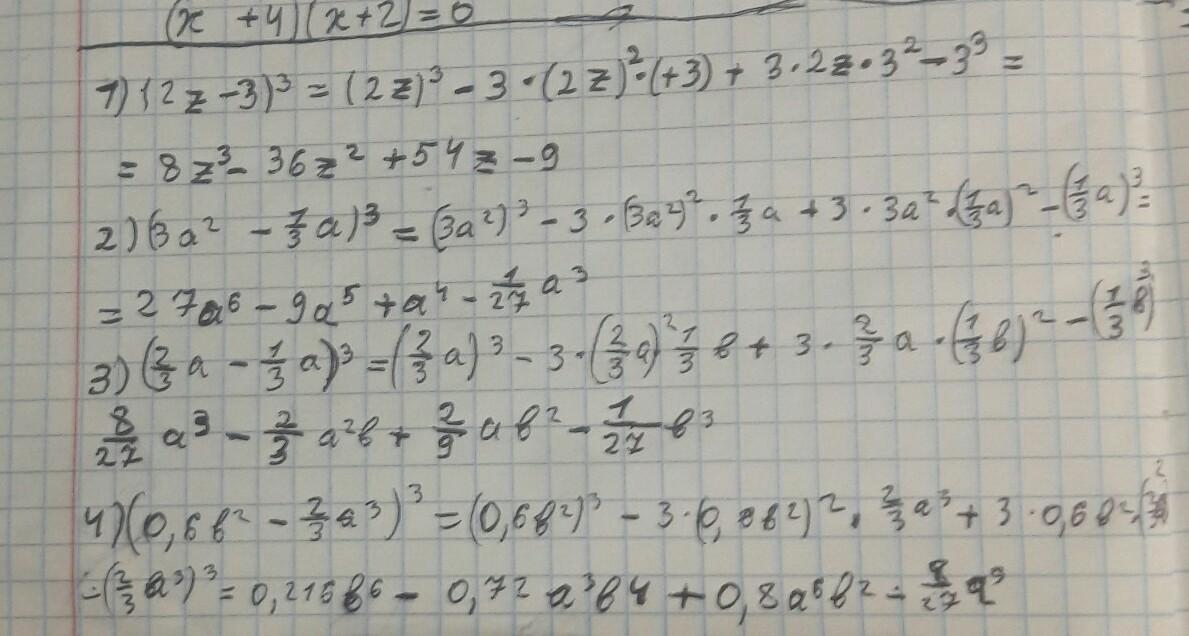 (x +4)(x+2)=0
1) (2z-3)³ = (2z)³ - 3·(2z)²·(+3) + 3·2z·3² - 3³ =
= 8z³ - 36z² + 54z - 9
2) (3a² - 1/3 a)³ = (3a²)³ - 3·(3a²)²·1/3 a + 3·3a²·(1/3 a)² - (1/3 a)³ =
= 27a⁶ - 9a⁵ + a⁴ - 1/27 a³
3) (2/3 a - 1/3 a)³ = (2/3 a)³ - 3·(2/3 a)² 1/3 в + 3·2/3 a·(1/3 в)² - (1/3 в)³
8/27 a³ - 2/3 a²в + 2/9 aв² - 1/27 в³
4) (0,6в² - 2/3 a³)³ = (0,6в²)³ - 3·(0, в²)²·2/3 a³ + 3·0,6в²·
-(2/3 a³)³ = 0,216в⁶ - 0,72 a³в4 + 0,8a⁶в² - 8/27 a⁹